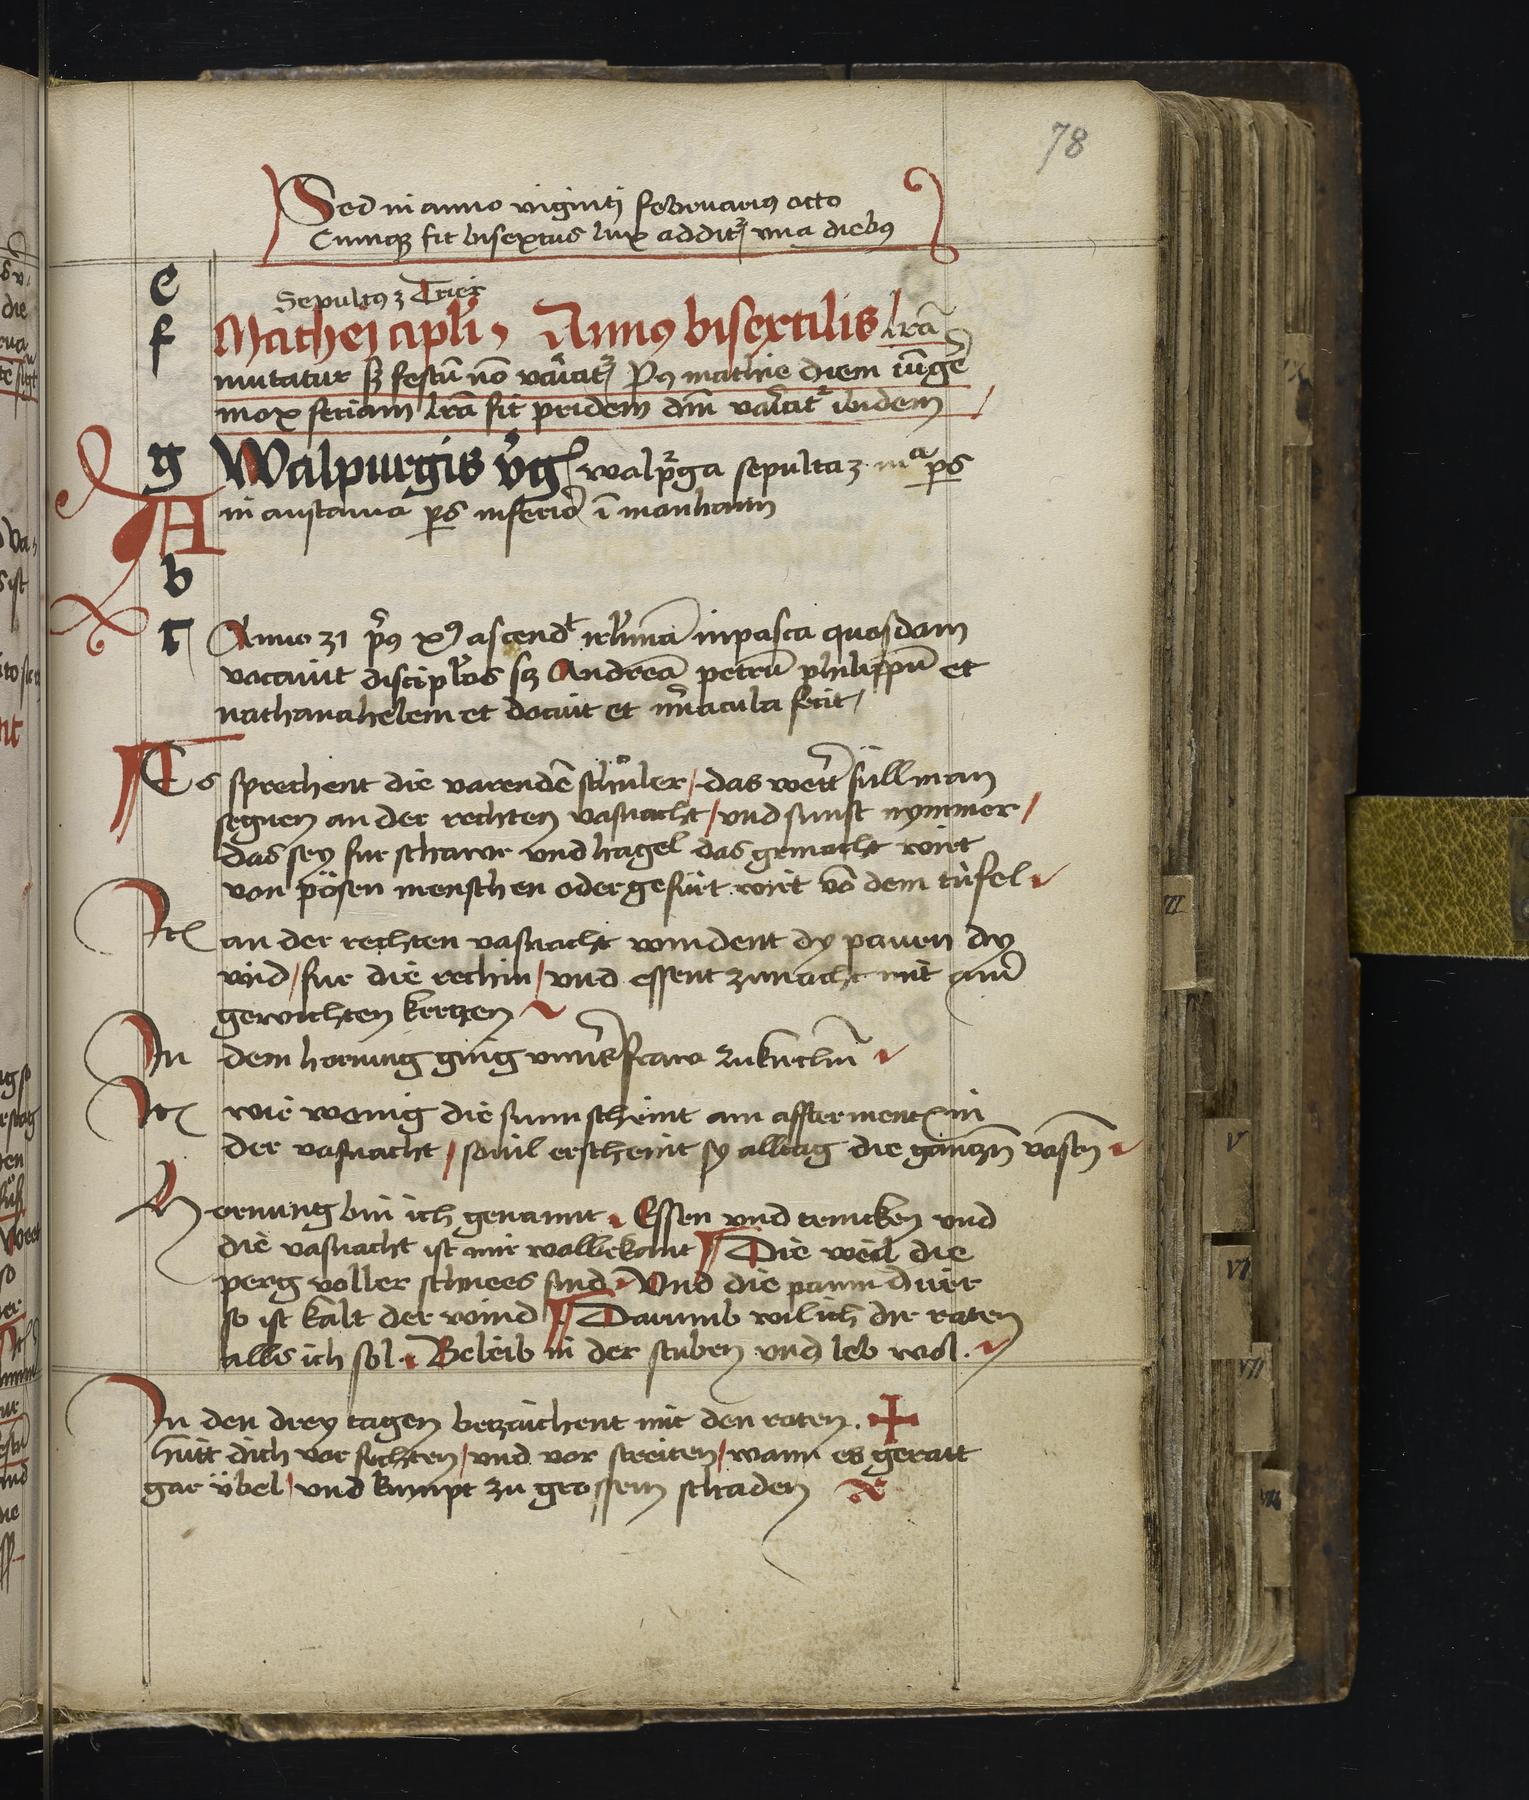 78
Sed in anno viginti februarius octo
Cumqz fit bisextus lux additr una diebus
e
Sepultus z Trier
f Mathei apli, Annus bisextilis lrã
mutatur sz festũ nõ vaĩatr Pus mathie diem iũge
mox feriam lrã fit pridem dm̃ vaĩatr ibidem
g Walpurgis vg walprga sepulta z
A in ps inferio ĩ monhaim
b
c Anno 31 pus xus ascendt irlimã in pasca quosdam
vocavit disciplos sz Andreã petrũ philippũ et
nathanahelem et docuit et miracula fecit/
Es sprechent die varendẽ schuler/ das wetr süll man
segnen an der rechten vasnacht/ vnd sunst nymmer/
das sey fur schawr vnd hagel das gemacht wirt
von pösen menschen oder gefürt wirt võ dem tüfel
Itẽ an der rechten vasnacht windent dy pauren dy
wid/ fur die rechin/ vnd essent zu nacht mit ainer
gewichten kertzen
In dem hornung ging vnnser fraw zu kirchn
Itẽ wie wenig die sunn scheint am affterment in
der vasnacht/ souil erscheint sy alltag die gantzn vastn
Hornung bin ich genannt. Essen vnd trincken vnd
die vasnacht ist mir wollbekant Die weil die
perg voller schnees sind. Vnd die paum dürr
so ist kalt der wind Darumb wil ich dir raten
alls ich sol. Beleib in der stuben vnd leb wol.
In den drey tagen betzaichent mit den roten. +
hütt dich vor fechten/ vnd vor streiten/ wann es geratt
gar übel/ vnd kumpt zu grossem schaden